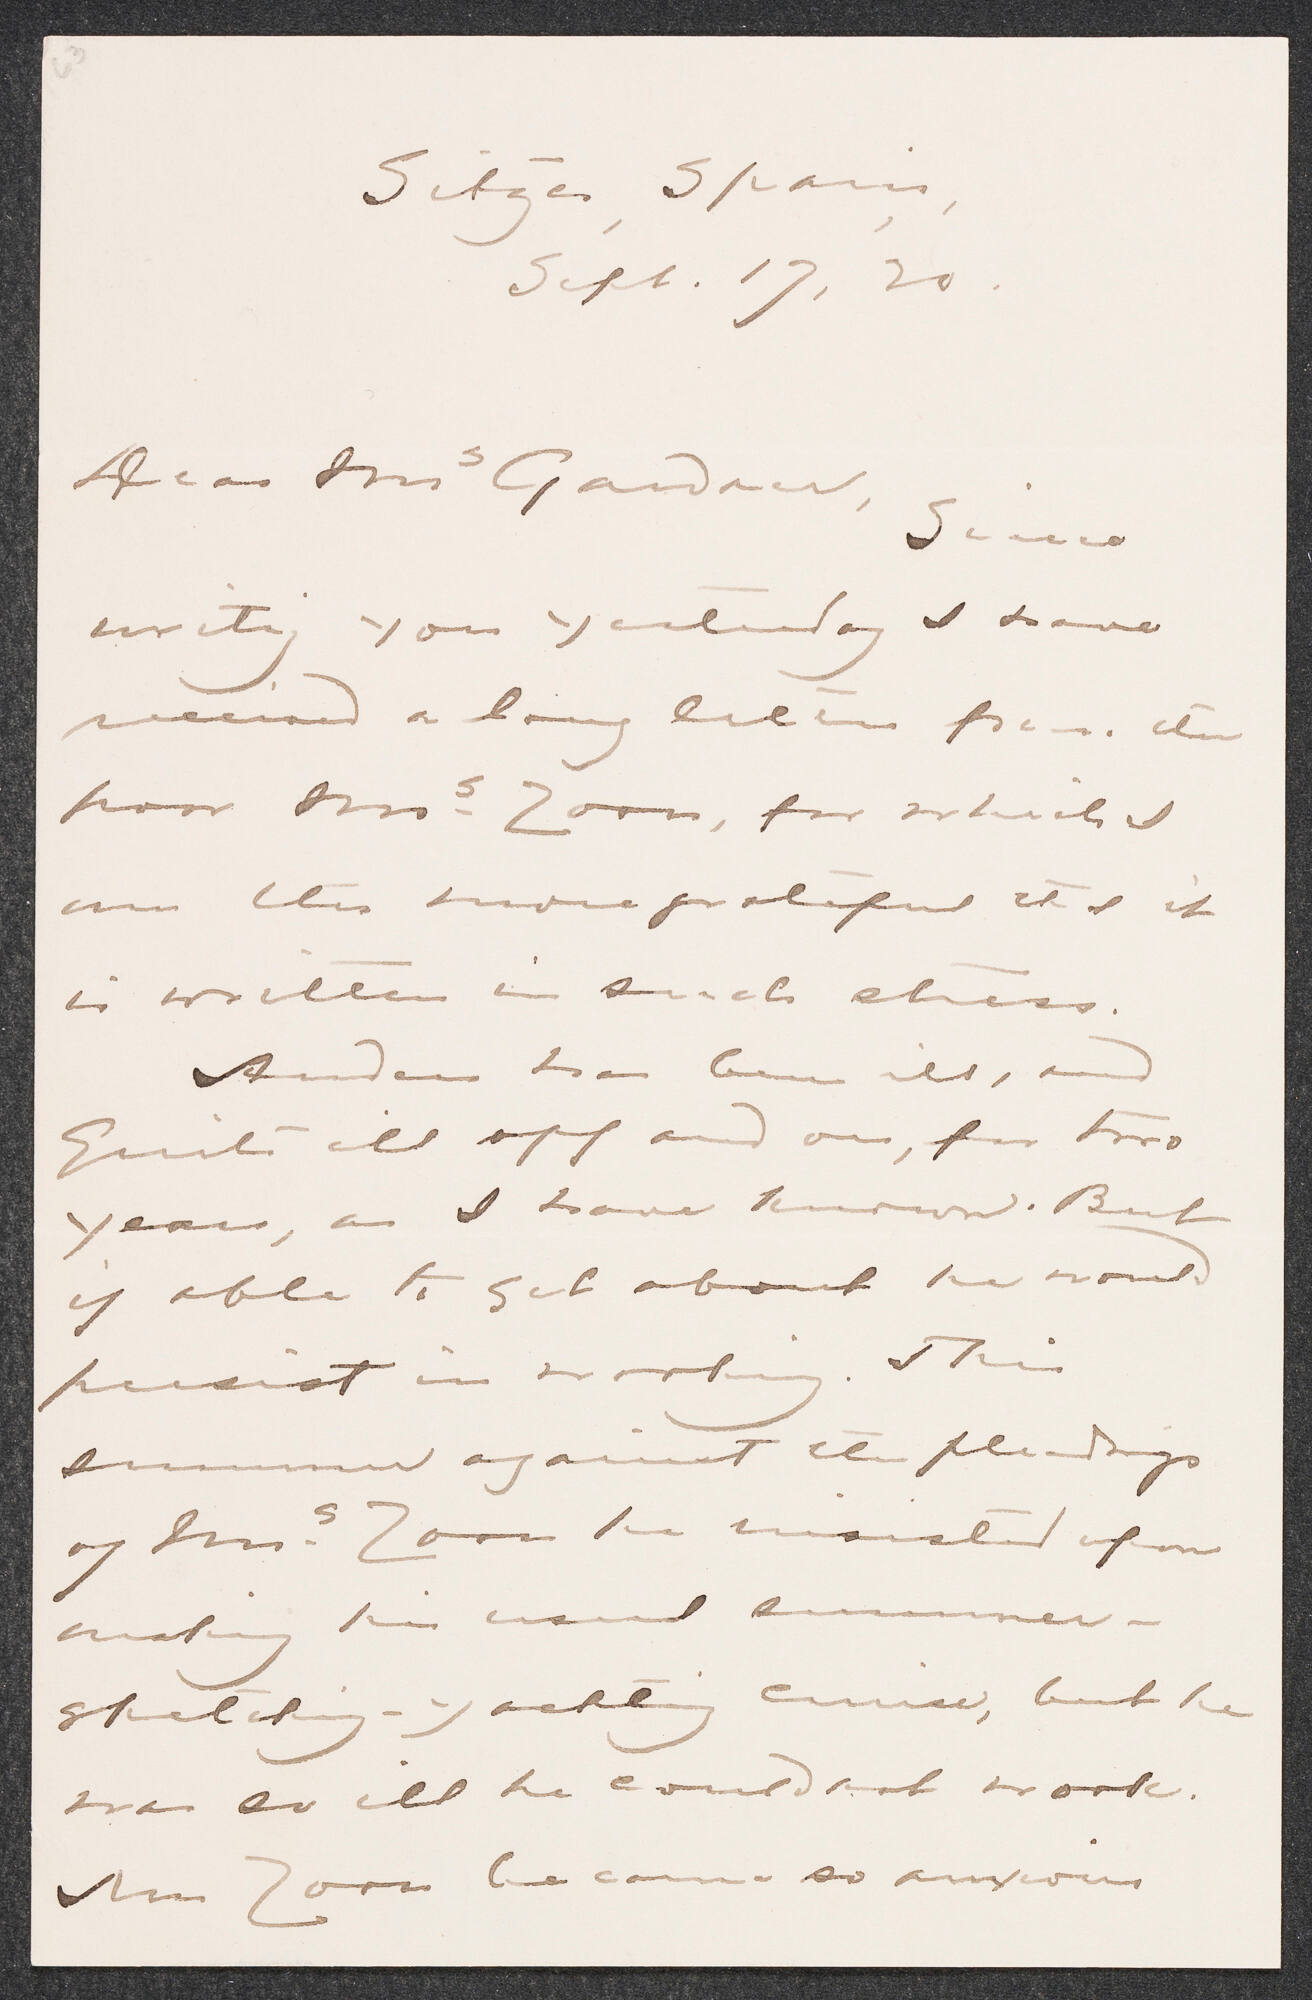 Sitges, Spain,
Sept. 17, 20.
Dear Mrs Gardner,
Since
writing you yesterday I have
received a long letter from the
poor Mrs. Zorn, for which I
am the more grateful that it
is written in such stress.
Anders has been ill, and
quite ill off and on, for two
years, as I have known. But
if able to get about he would
persist in working. This
summer against the pleadings
of Mrs. Zorn he insisted upon
making his usual summer-
sketching-yachting cruise, but he
was so ill he could not work.
Mrs Zorn became so anxious